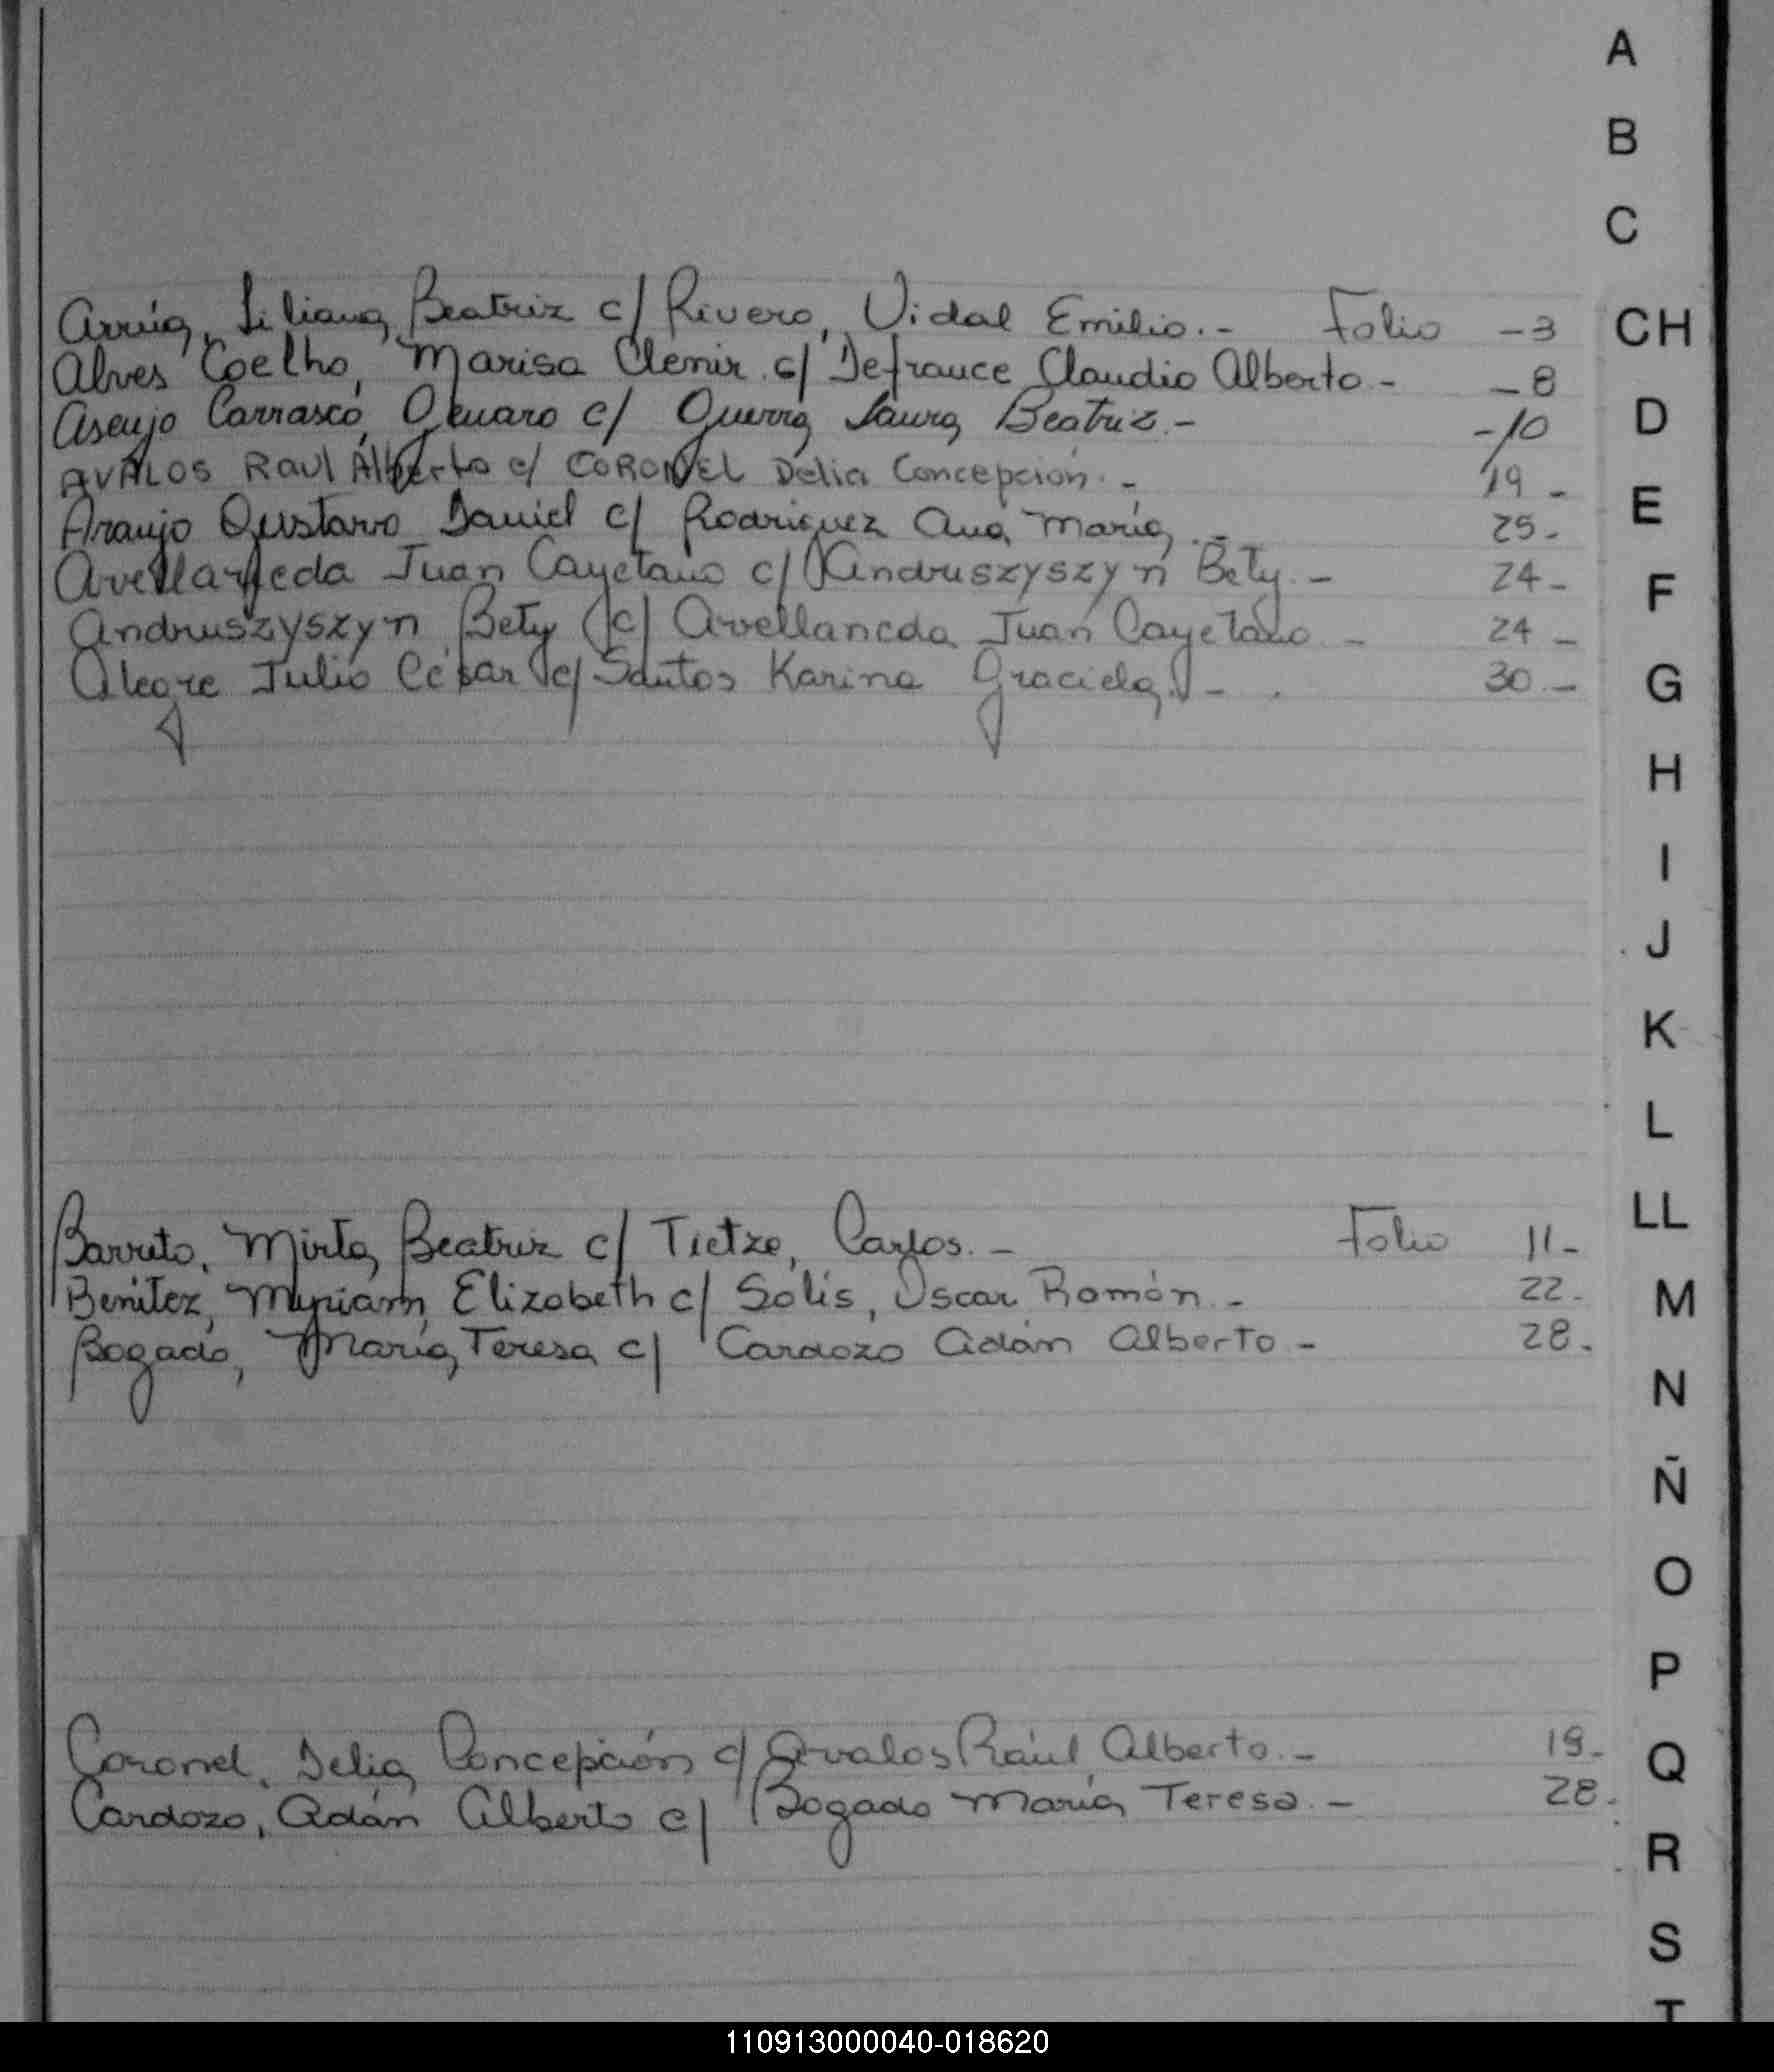 A
B
C
Arrúa, Liliana Beatriz c/ Rivero, Vidal Emilio.- Folio -3
CH
Alves Coelho, Marisa Clemir c/ Defrance Claudio Alberto.- -8
D
Asenjo Carrasco, Genaro c/ Guerra Laura Beatriz.- -10
AVALOS Raul Alberto c/ CORONEL Delia Concepción.- 19-
E
Araujo Gustavo Daniel c/ Rodriguez Ana María.- 25-
Avellaneda Juan Cayetano c/ Andruszyszyn Bety.- 24-
F
Andruszyszyn Bety c/ Avellaneda Juan Cayetano.- 24-
Alegre Julio César c/ Santos Karina Graciela.- 30.-
G
H
I
J
K
L
LL
Barreto, Mirta Beatriz c/ Tietze, Carlos.- Folio 11-
Benitez, Myriam Elizabeth c/ Solis, Oscar Román.- 22-
M
Bogado, María Teresa c/ Cardozo Adán Alberto.- 28.
N
Ñ
O
P
Coronel, Delia Concepción c/ Avalos Raúl Alberto.- 19-
Q
Cardozo, Adán Alberto c/ Bogado María Teresa.- 28.
R
S
T
110913000040-018620